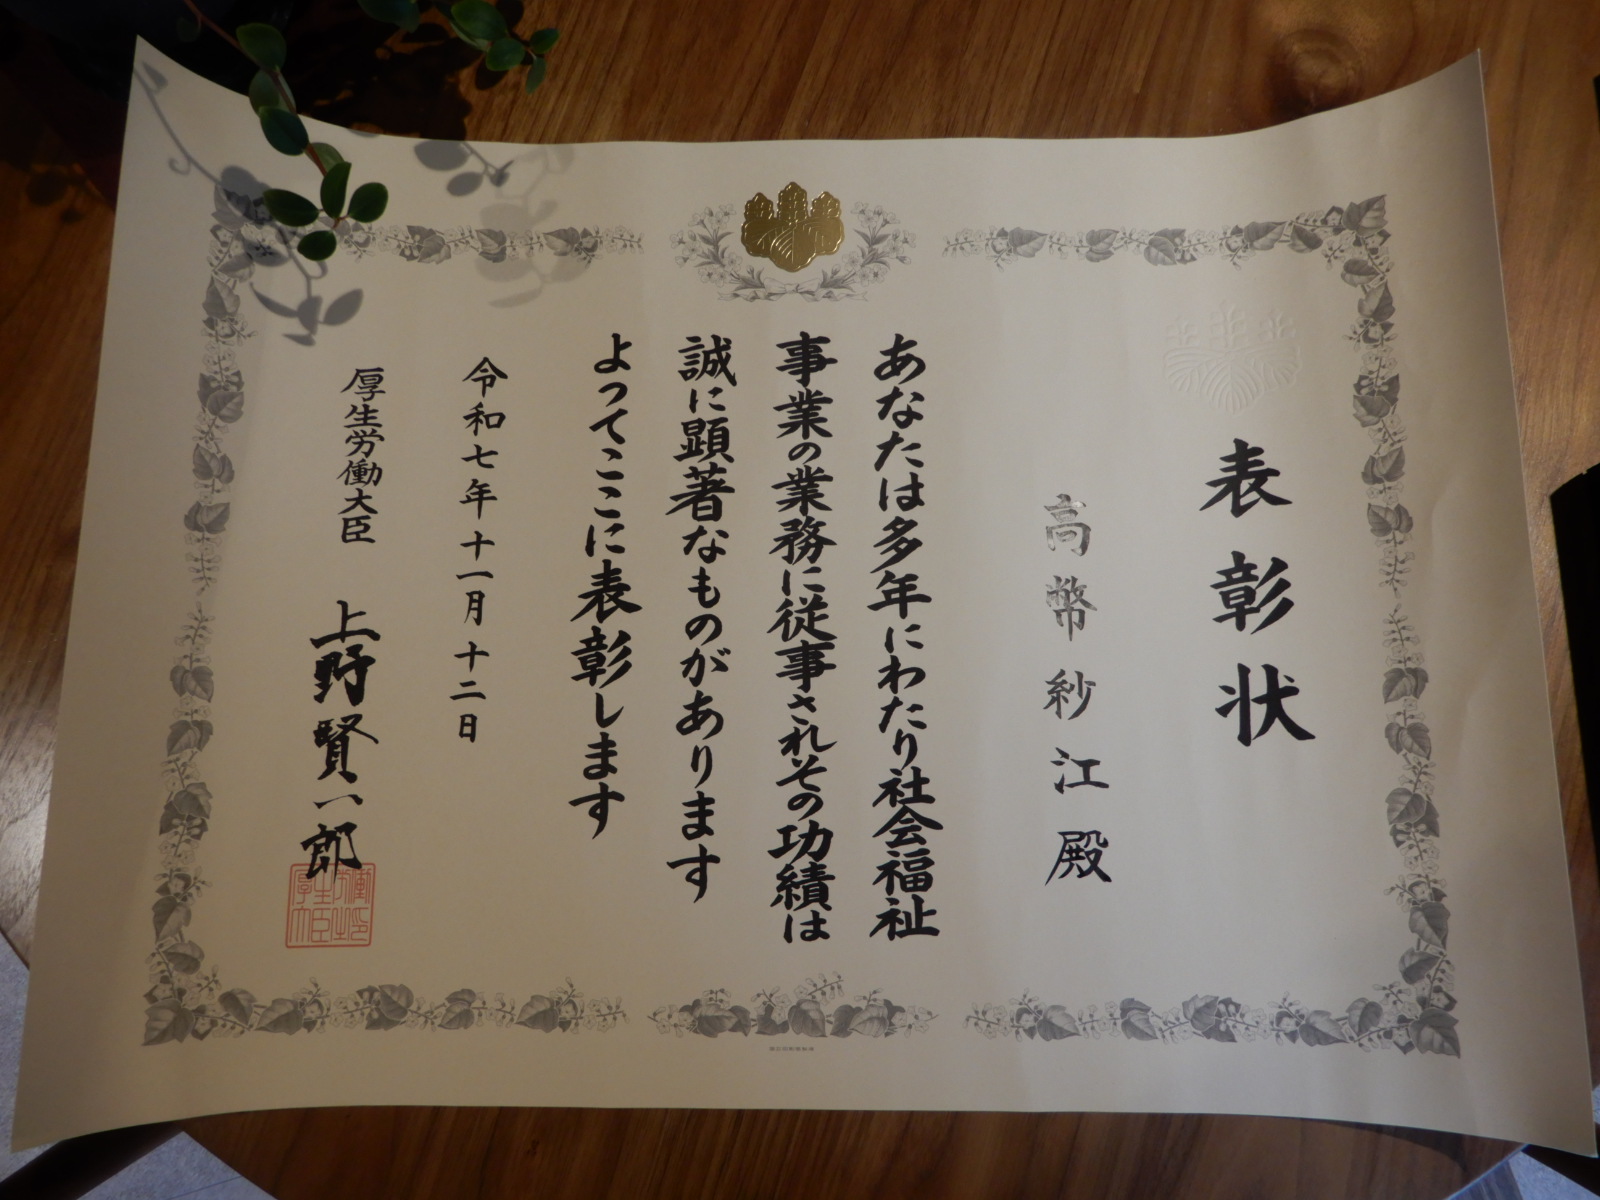 表彰状
高幣紗江殿
あなたは多年にわたり社会福祉
事業の業務に従事されその功績は
誠に顕著なものがあります
よってここに表彰します
令和七年十一月十二日
厚生労働大臣 上野賢一郎